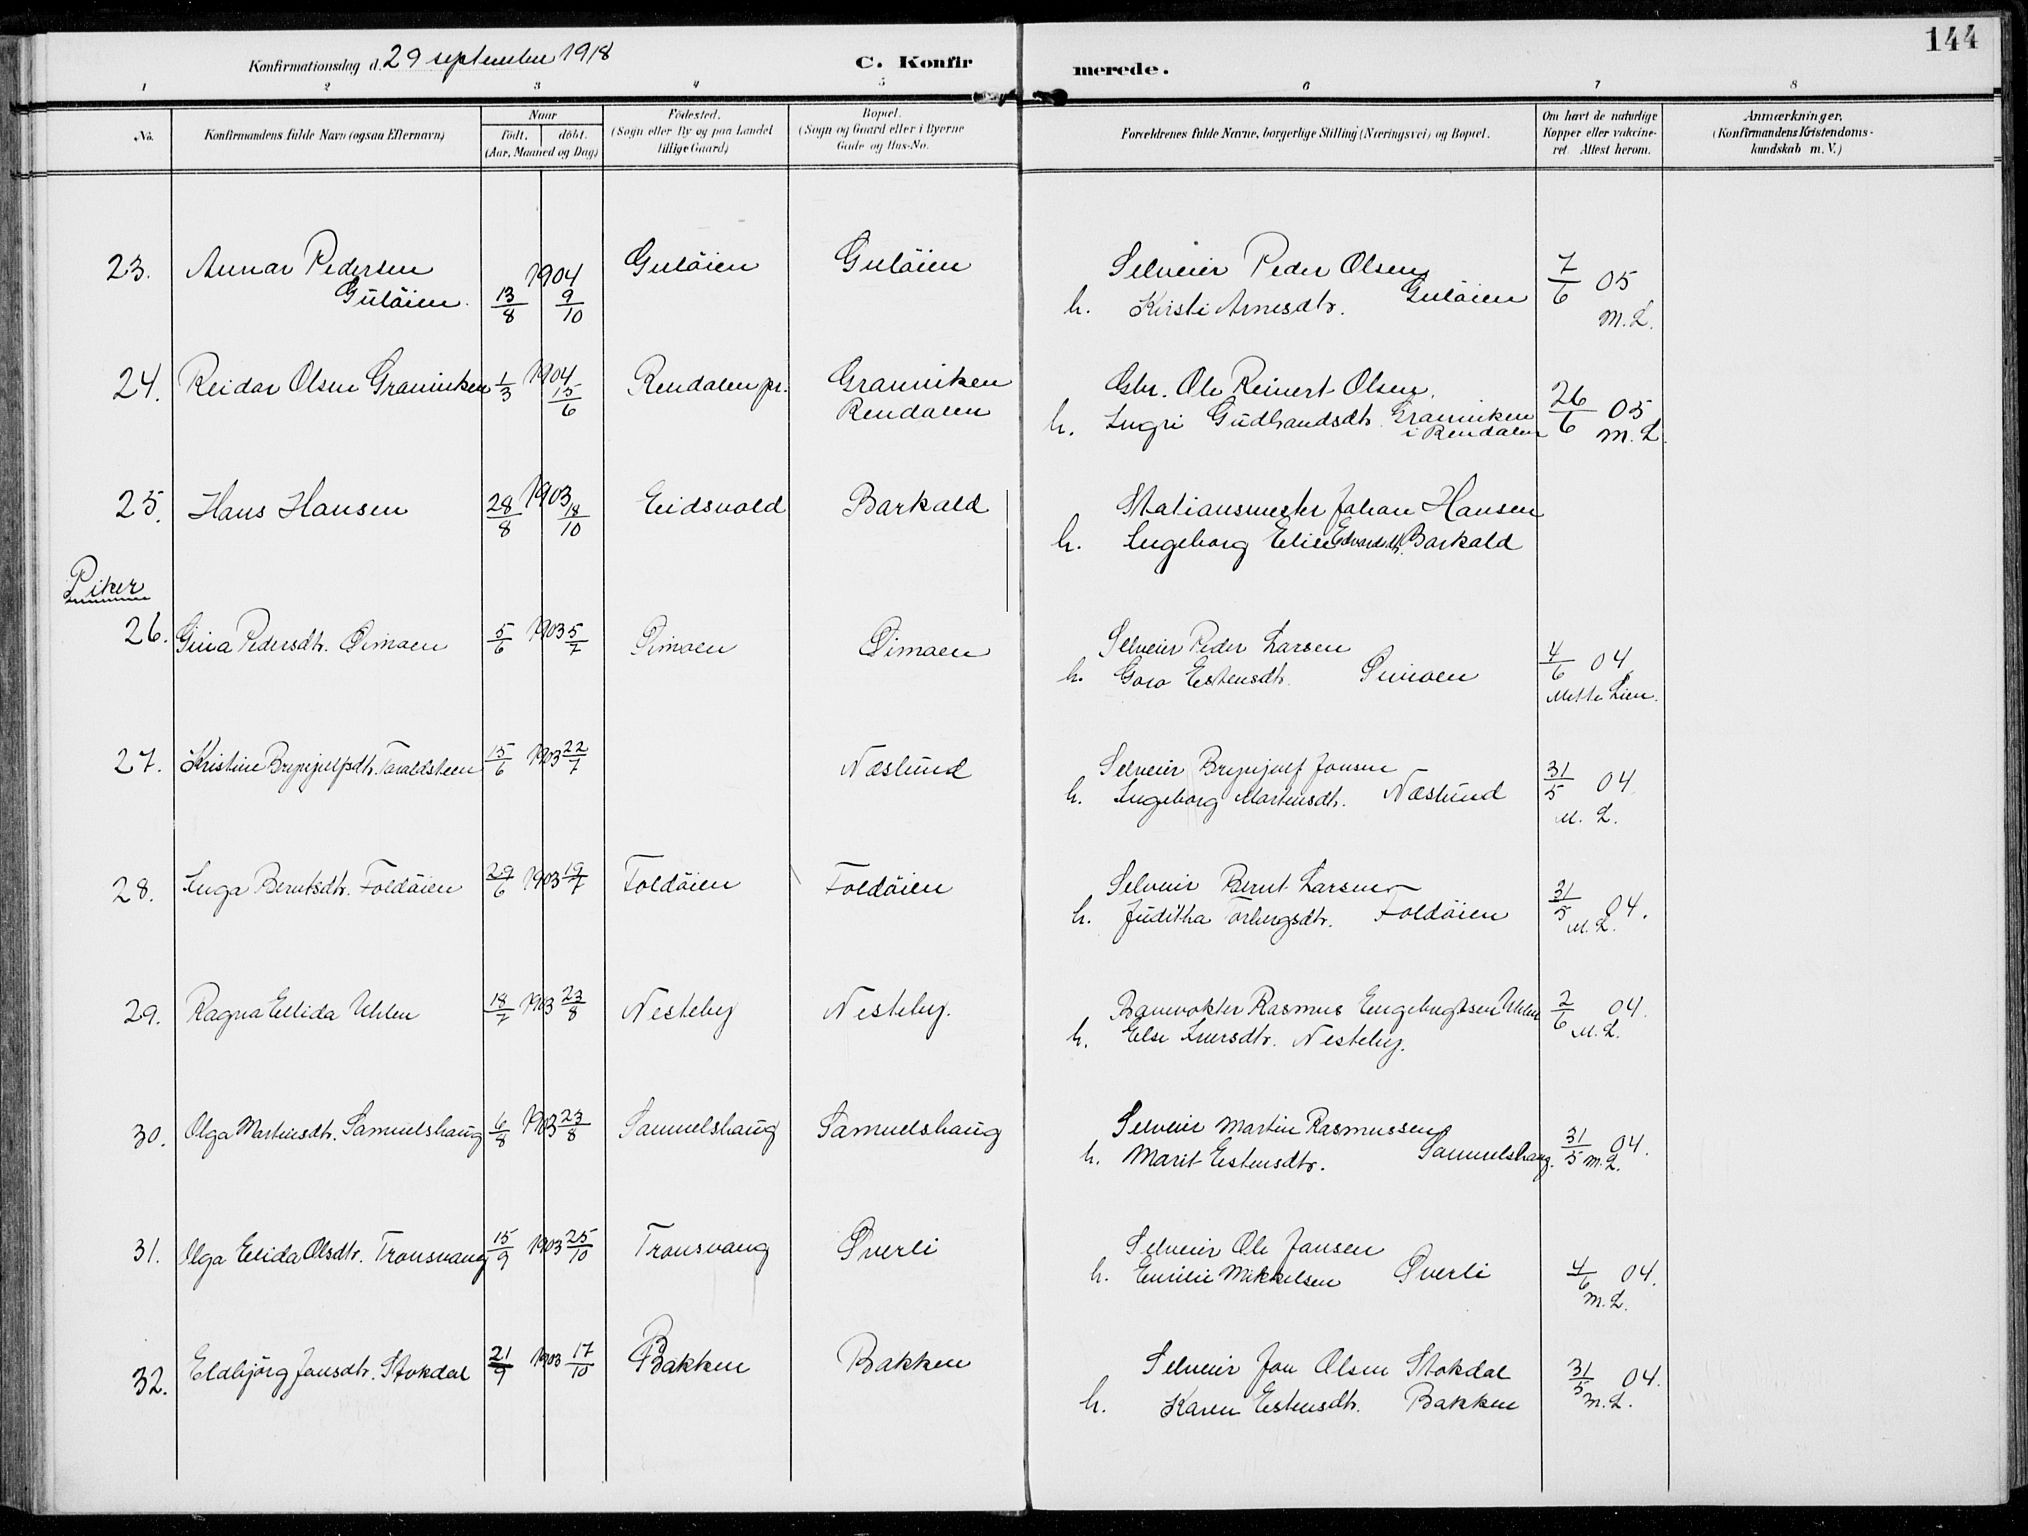 144
Konfirmationsdag d. 29 september 1918
C. Konfirmerede.
1 2 3 4 5 6 7 8
No.
Konfirmandens fulde Navn (ogsaa Efternavn)
Naar
født. døbt.
(Aar, Maaned og Dag)
Fødested.
(Sogn eller By og paa Landet
tillige Gaard)
Bopæl.
(Sogn og Gaard eller i Byerne
Gade og Hus-No.
Forældrenes fulde Navne, borgerlige Stilling (Næringsvei) og Bopæl.
Om havt de naturlige
Kopper eller vakcine-
ret Attest herom.
Anmærkninger,
(Konfirmandens Kristendoms-
kundskab m. V.)
23. Annar Pedersen 1904 Guløien Guløien Selveier Peder Olsen 7/6 05
Guløien. 13/8 9/10 h. Kirsti Arnesdtr. Guløien M. L.
24. Reidar Olsen Graaviken 1/3 1904 15/6 Rendalen pr. Graaviken Gbr. Ole Reinert Olsen. 26/6 05
Rendalen h. Ingri Gudbrandsdtr. Graaviken M. L.
i Rendalen
25. Hans Hansen 28/8 1903 18/10 Eidsvold Barkald Stationsmester Johan Hansen
h. Ingeborg Elise Edvardsdtr. Barkald
Piker
26. Gina Pedersdtr. Øimoen 5/6 1903 5/7 Øimoen Øimoen Selveier Peder Larsen 4/6 04
h. Goro Estensdtr. Øimoen Mette Lien.
27. Kristine Brynjulfsdtr. Taraldsteen 15/6 1903 22/7 Næslund Selveier Brynjulf Jonsen 31/5 04
h. Ingeborg Martinsdtr. Næslund M. L.
28. Inga Berntsdtr. Foldøien 29/6 1903 19/7 Foldøien Foldøien Selveier Bernt Larsen 31/5 04.
h. Juditha Torbergsdtr. Foldøien M. L.
29. Ragna Ellida Uhlen 18/7 1903 23/8 Nesteby Nesteby. Banevokter Rasmus Engebrigtsen Uhlen 2/6 04.
h. Else Iversdtr. Nesteby. M. L.
30. Olga Martinsdtr. Samuelshaug 6/8 1903 23/8 Samuelshaug Samuelshaug Selveier Martin Rasmussen 31/5 04.
h. Marit Estensdtr. Samuelshaug. M. L.
31. Olga Elida Olsdtr. Tronsvang 15/9 1903 25/10 Tronsvang Øverli Selveier Ole Jansen 4/6 04.
h. Emilie Mikkelsen Øverli M. L.
32. Eldbjørg Jonsdtr. Stokdal 21/9 1903 17/10 Bakken Bakken Selveier Jon Olsen Stokdal 31/5 04.
h. Karen Estensdtr. Bakken M. L.